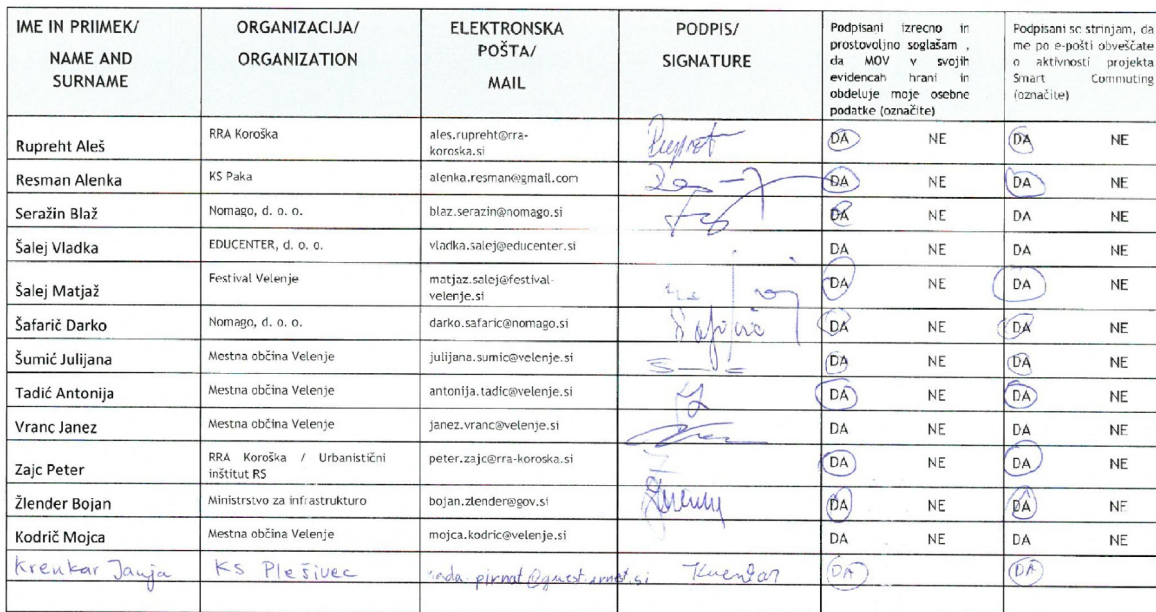 IME IN PRIIMEK/
NAME AND
SURNAME
ORGANIZACIJA/
ORGANIZATION
ELEKTRONSKA
POŠTA/
MAIL
PODPIS/
SIGNATURE
Podpisani izrecno in
prostovoljno soglašam ,
da MOV v svojih
evidencah hrani in
obdeluje moje osebne
podatke (označite)
Podpisani se strinjam, da
me po e-pošti obveščate
o aktivnosti projekta
Smart Commuting
(označite)
Rupreht Aleš RRA Koroška ales.rupreht@rra-
koroska.si DA NE DA NE
Resman Alenka KS Paka alenka.resman@gmail.com DA NE DA NE
Seražin Blaž Nomago, d. o. o. blaz.serazin@nomago.si DA NE DA NE
Šalej Vladka EDUCENTER, d. o. o. vladka.salej@educenter.si DA NE DA NE
Šalej Matjaž Festival Velenje matjaz.salej@festival-
velenje.si DA NE DA NE
Šafarič Darko Nomago, d. o. o. darko.safaric@nomago.si DA NE DA NE
Šumić Julijana Mestna občina Velenje julijana.sumic@velenje.si DA NE DA NE
Tadić Antonija Mestna občina Velenje antonija.tadic@velenje.si DA NE DA NE
Vranc Janez Mestna občina Velenje janez.vranc@velenje.si DA NE DA NE
Zajc Peter RRA Koroška / Urbanistični
inštitut RS peter.zajc@rra-koroska.si DA NE DA NE
Žlender Bojan Ministrstvo za infrastrukturo bojan.zlender@gov.si DA NE DA NE
Kodrič Mojca Mestna občina Velenje mojca.kodric@velenje.si DA NE DA NE
Krenkar Janja KS Plešivec DA DA